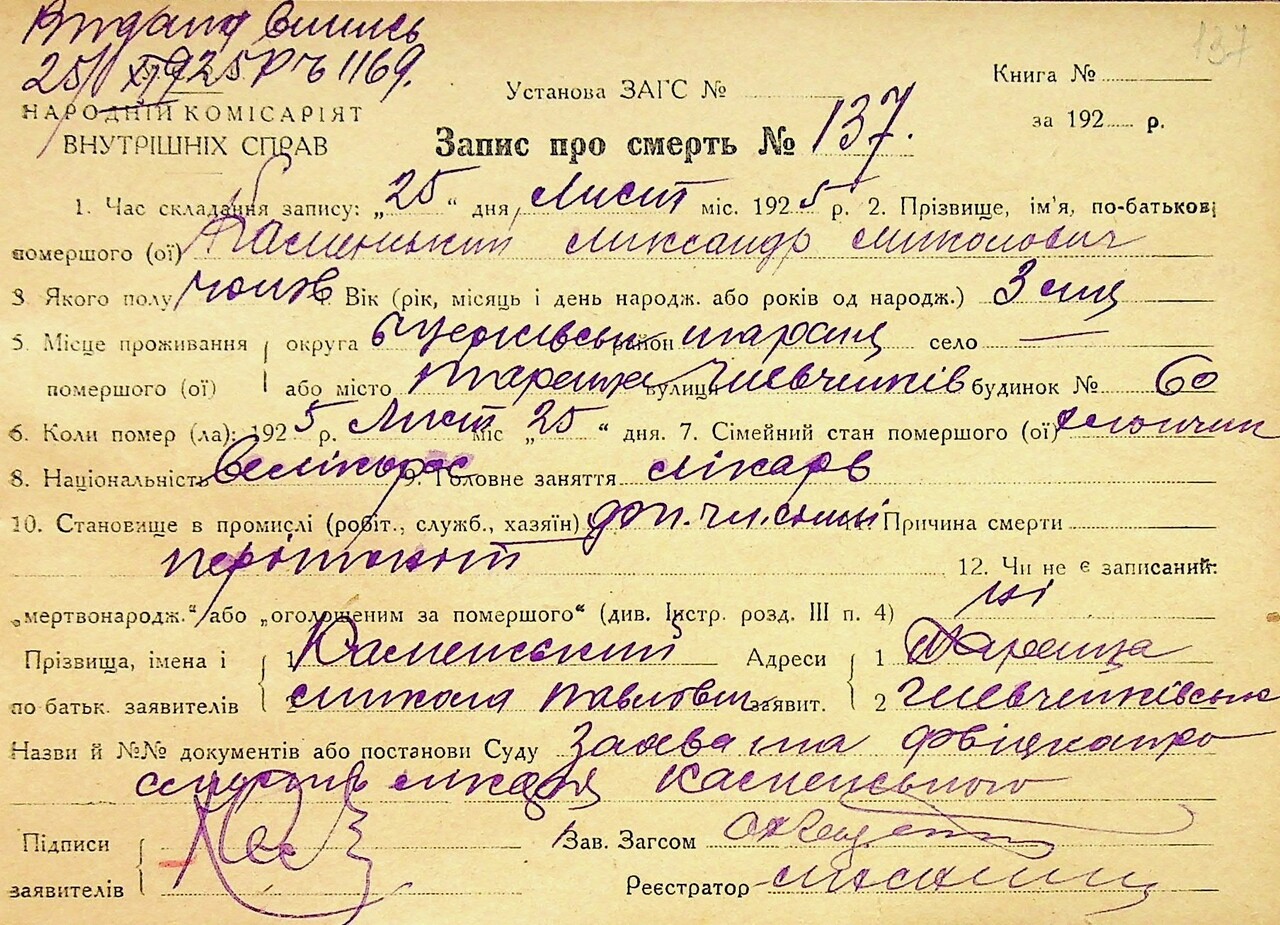 Видано випись
25/XI 1925 р Ч 1169.
137
НАРОДНІЙ КОМІСАРІЯТ
ВНУТРІШНІХ СПРАВ
Установа ЗАГС №
Книга №
за 192 р.
Запис про смерть № 137.
1. Час складання запису: „25“ дня, Лист міс. 1925 р. 2. Прізвище, ім'я, по-батькові
помершого (ої) Каменський Олександр Миколович
3. Якого полу чолов Вік (рік, місяць і день народж. або років од народж.) 3 міс
5. Місце проживання округа район таращ село —
помершого (ої) або місто Тараща вулиці Шевченків будинок № 60
6. Коли помер (ла): 1925 р. Лист міс „25“ дня. 7. Сімейний стан помершого (ої) хлопчик
8. Національність Велікорос 9. Головне заняття лікарь
10. Становище в промислі (робіт., служб., хазяїн) Причина смерти
перітоніт 12. Чи не є записаний:
„мертвонародж.“ або „оголошеним за помершого“ (див. Інстр. розд. III п. 4) ні
Прізвища, імена і 1 Каменський Адреси 1 Тараща
по батьк. заявителів 2 Микола Павлович заявит. 2 Шевченківськ
Назви й №№ документів або постанови Суду Заява та про
смерть лікаря Каменського
Підписи Зав. Загсом
заявителів Реєстратор